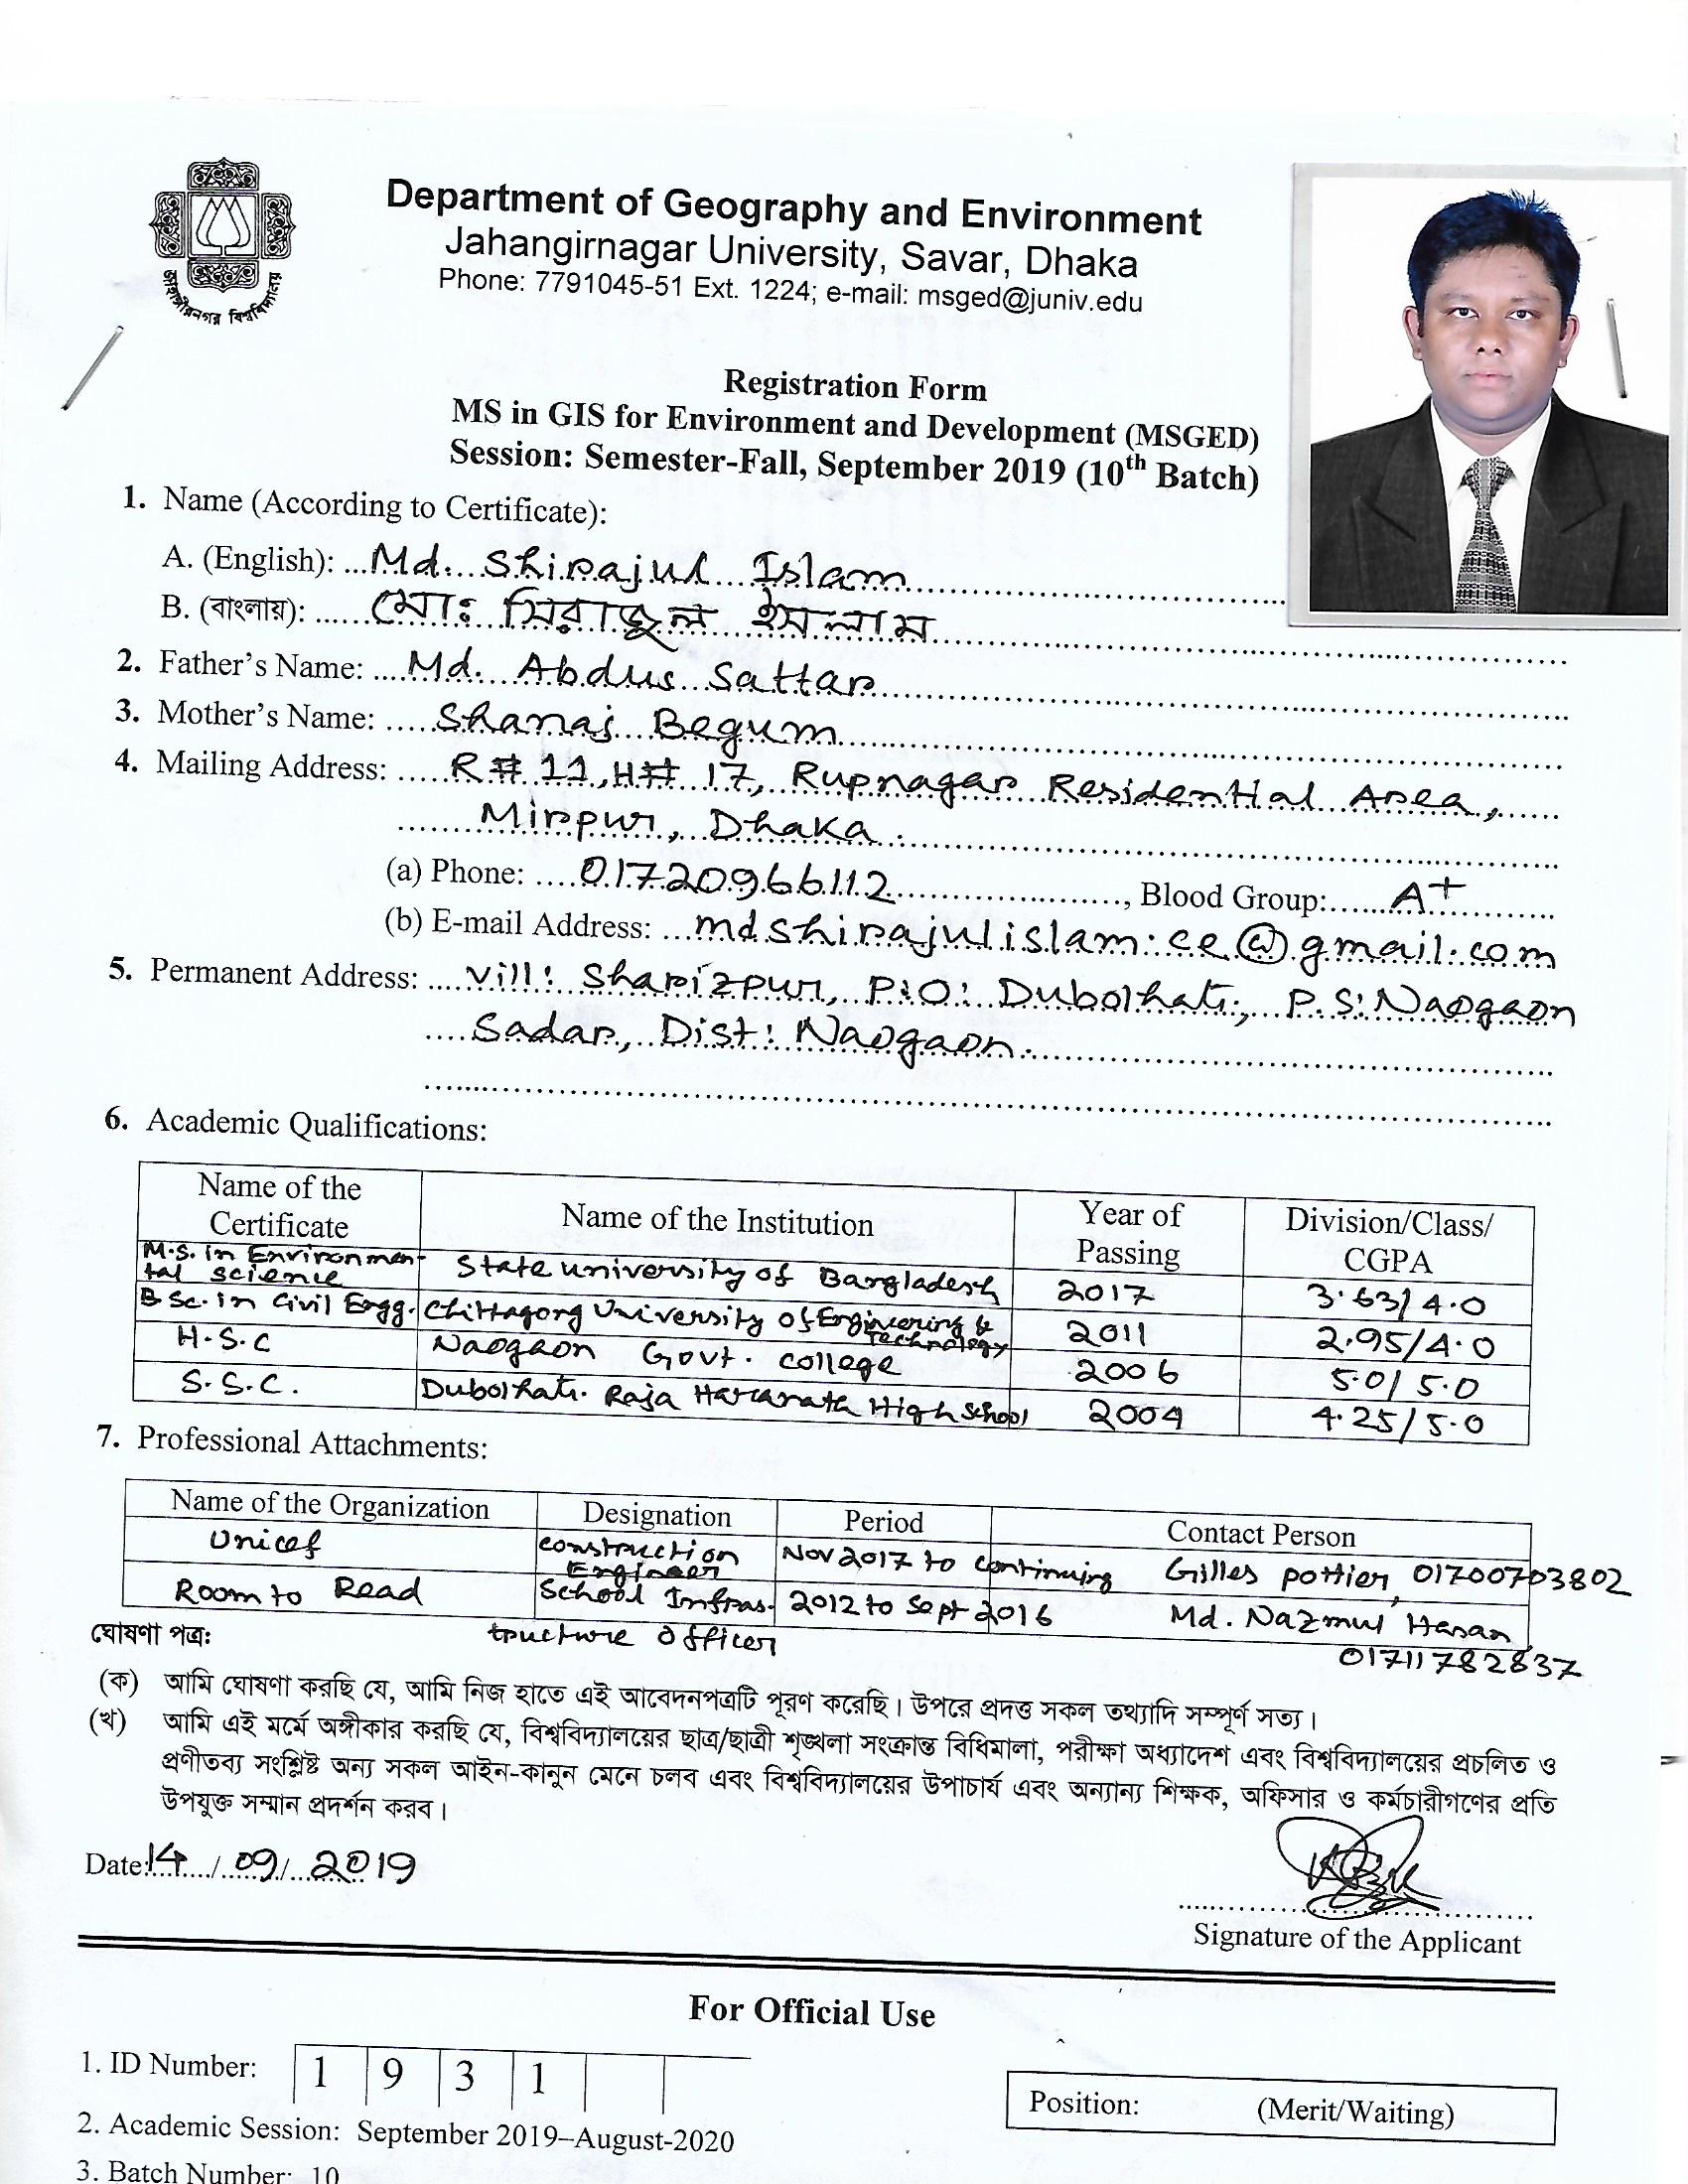 জাহাঙ্গীরনগর বিশ্ববিদ্যালয়
Department of Geography and Environment
Jahangirnagar University, Savar, Dhaka
Phone: 7791045-51 Ext. 1224; e-mail: msged@juniv.edu
Registration Form
MS in GIS for Environment and Development (MSGED)
Session: Semester-Fall, September 2019 (10th Batch)
1. Name (According to Certificate):
A. (English): Md. Shirajul Islam
B. (বাংলায়): মোঃ সিরাজুল ইসলাম
2. Father's Name: Md. Abdus Sattar
3. Mother's Name: Shanaj Begum
4. Mailing Address: R# 11, H# 17, Rupnagar Residential Area,
Mirpur, Dhaka.
(a) Phone: 01720966112, Blood Group: A+
(b) E-mail Address: mdshirajulislam.ce@gmail.com
5. Permanent Address: Vill: Sharizpur, P.O: Dubolhati, P.S: Naogaon
Sadar, Dist: Naogaon.
6. Academic Qualifications:
Name of the Certificate Name of the Institution Year of Passing Division/Class/ CGPA
M.S. in Environmental science State university of Bangladesh 2017 3.63/4.0
B Sc. in Civil Engg. Chittagong University of Engineering & Technology 2011 2.95/4.0
H.S.C Naogaon Govt. college 2006 5.0/5.0
S.S.C. Dubolhati Raja Haranath High School 2004 4.25/5.0
7. Professional Attachments:
Name of the Organization Designation Period Contact Person
Unicef construction Engineer Nov 2017 to continuing Gilles pottier, 01700703802
Room to Read School Infrastructure officer 2012 to Sept 2016 Md. Nazmul Hasan 01711782837
ঘোষণা পত্র:
(ক) আমি ঘোষণা করছি যে, আমি নিজ হাতে এই আবেদনপত্রটি পূরণ করেছি। উপরে প্রদত্ত সকল তথ্যাদি সম্পূর্ণ সত্য।
(খ) আমি এই মর্মে অঙ্গীকার করছি যে, বিশ্ববিদ্যালয়ের ছাত্র/ছাত্রী শৃঙ্খলা সংক্রান্ত বিধিমালা, পরীক্ষা অধ্যাদেশ এবং বিশ্ববিদ্যালয়ের প্রচলিত ও
প্রণীতব্য সংশ্লিষ্ট অন্য সকল আইন-কানুন মেনে চলব এবং বিশ্ববিদ্যালয়ের উপাচার্য এবং অন্যান্য শিক্ষক, অফিসার ও কর্মচারীগণের প্রতি
উপযুক্ত সম্মান প্রদর্শন করব।
Date: 14/09/2019
Signature of the Applicant
For Official Use
1. ID Number: 1 9 3 1
Position: (Merit/Waiting)
2. Academic Session: September 2019–August-2020
3. Batch Number: 10